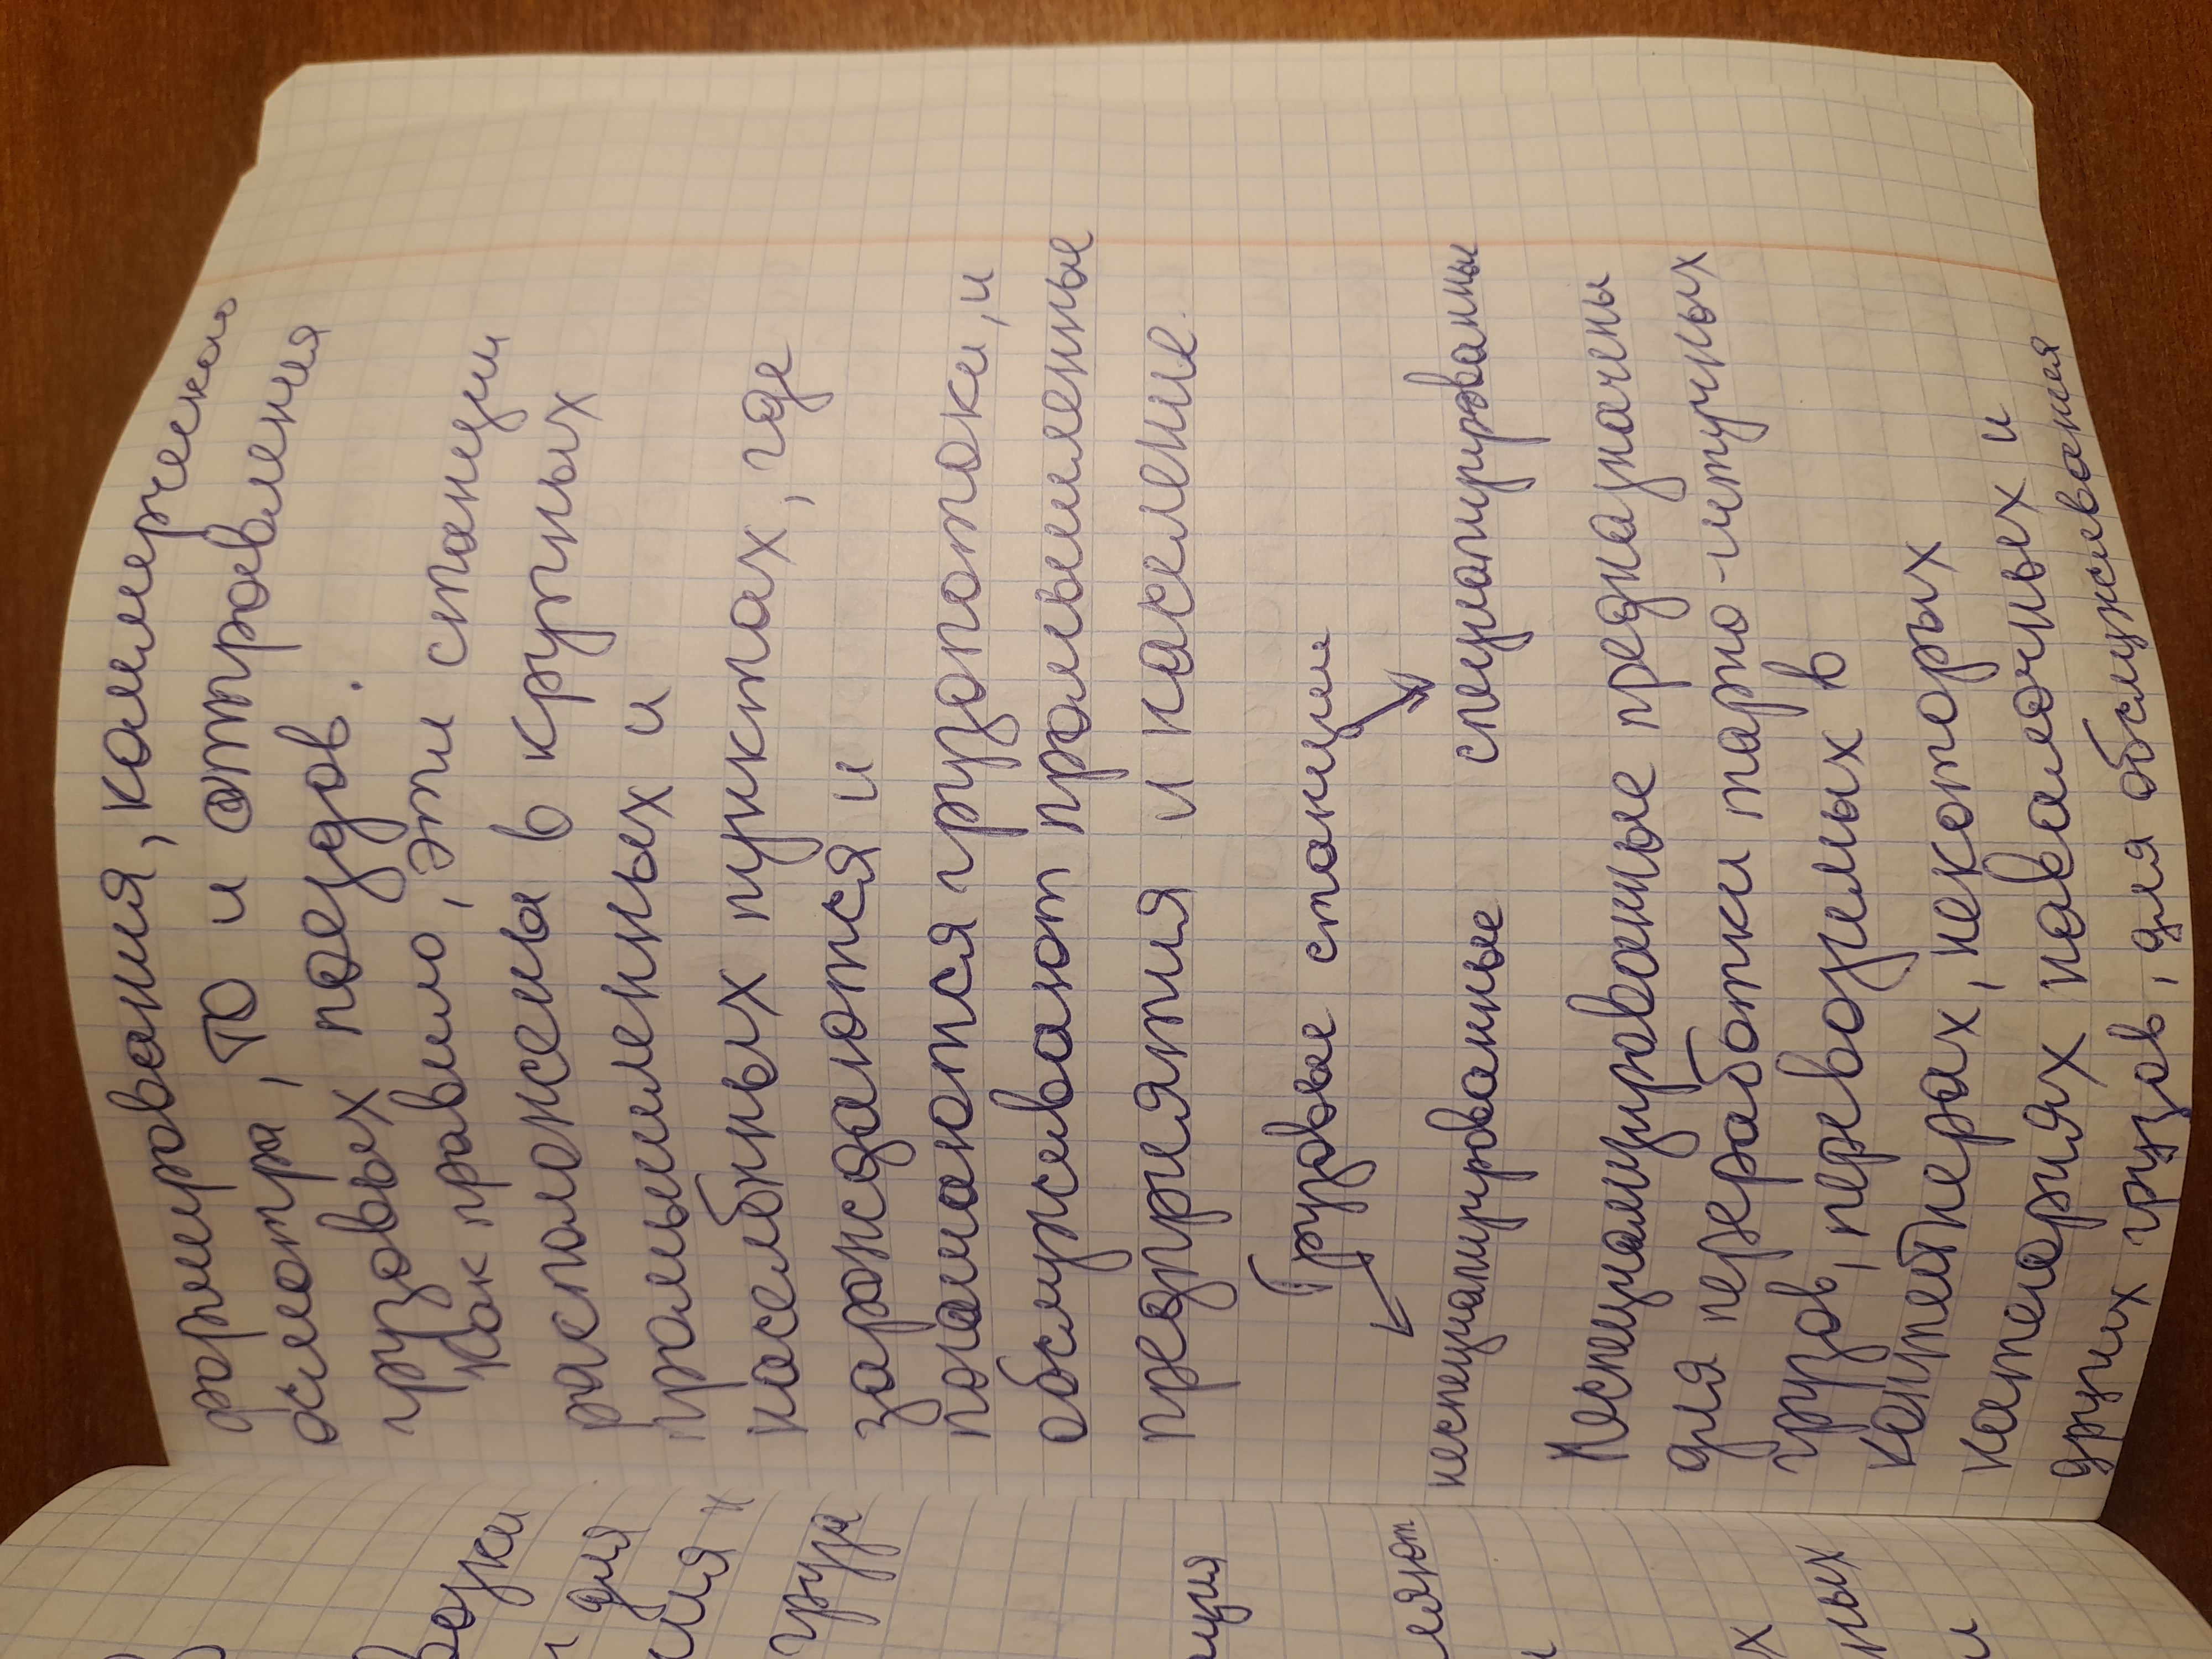 формирования, коммерческого
осмотра, ТО и отправления
грузовых поездов.
Как правило, эти станции
расположены в крупных
промышленных и
населённых пунктах, где
зарождаются и
погашаются грузопотоки, и
обслуживают промышленные
предприятия и население.
Грузовые станции
неспециализированные специализированны
Неспециализированные предназначены
для переработки тарно-штучных
грузов, перевозимых в
контейнерах, некоторых
категориях навалочных и
других грузов, для обслуживания
возки
для
ния и
груза
ация
ляют
х
ных
и